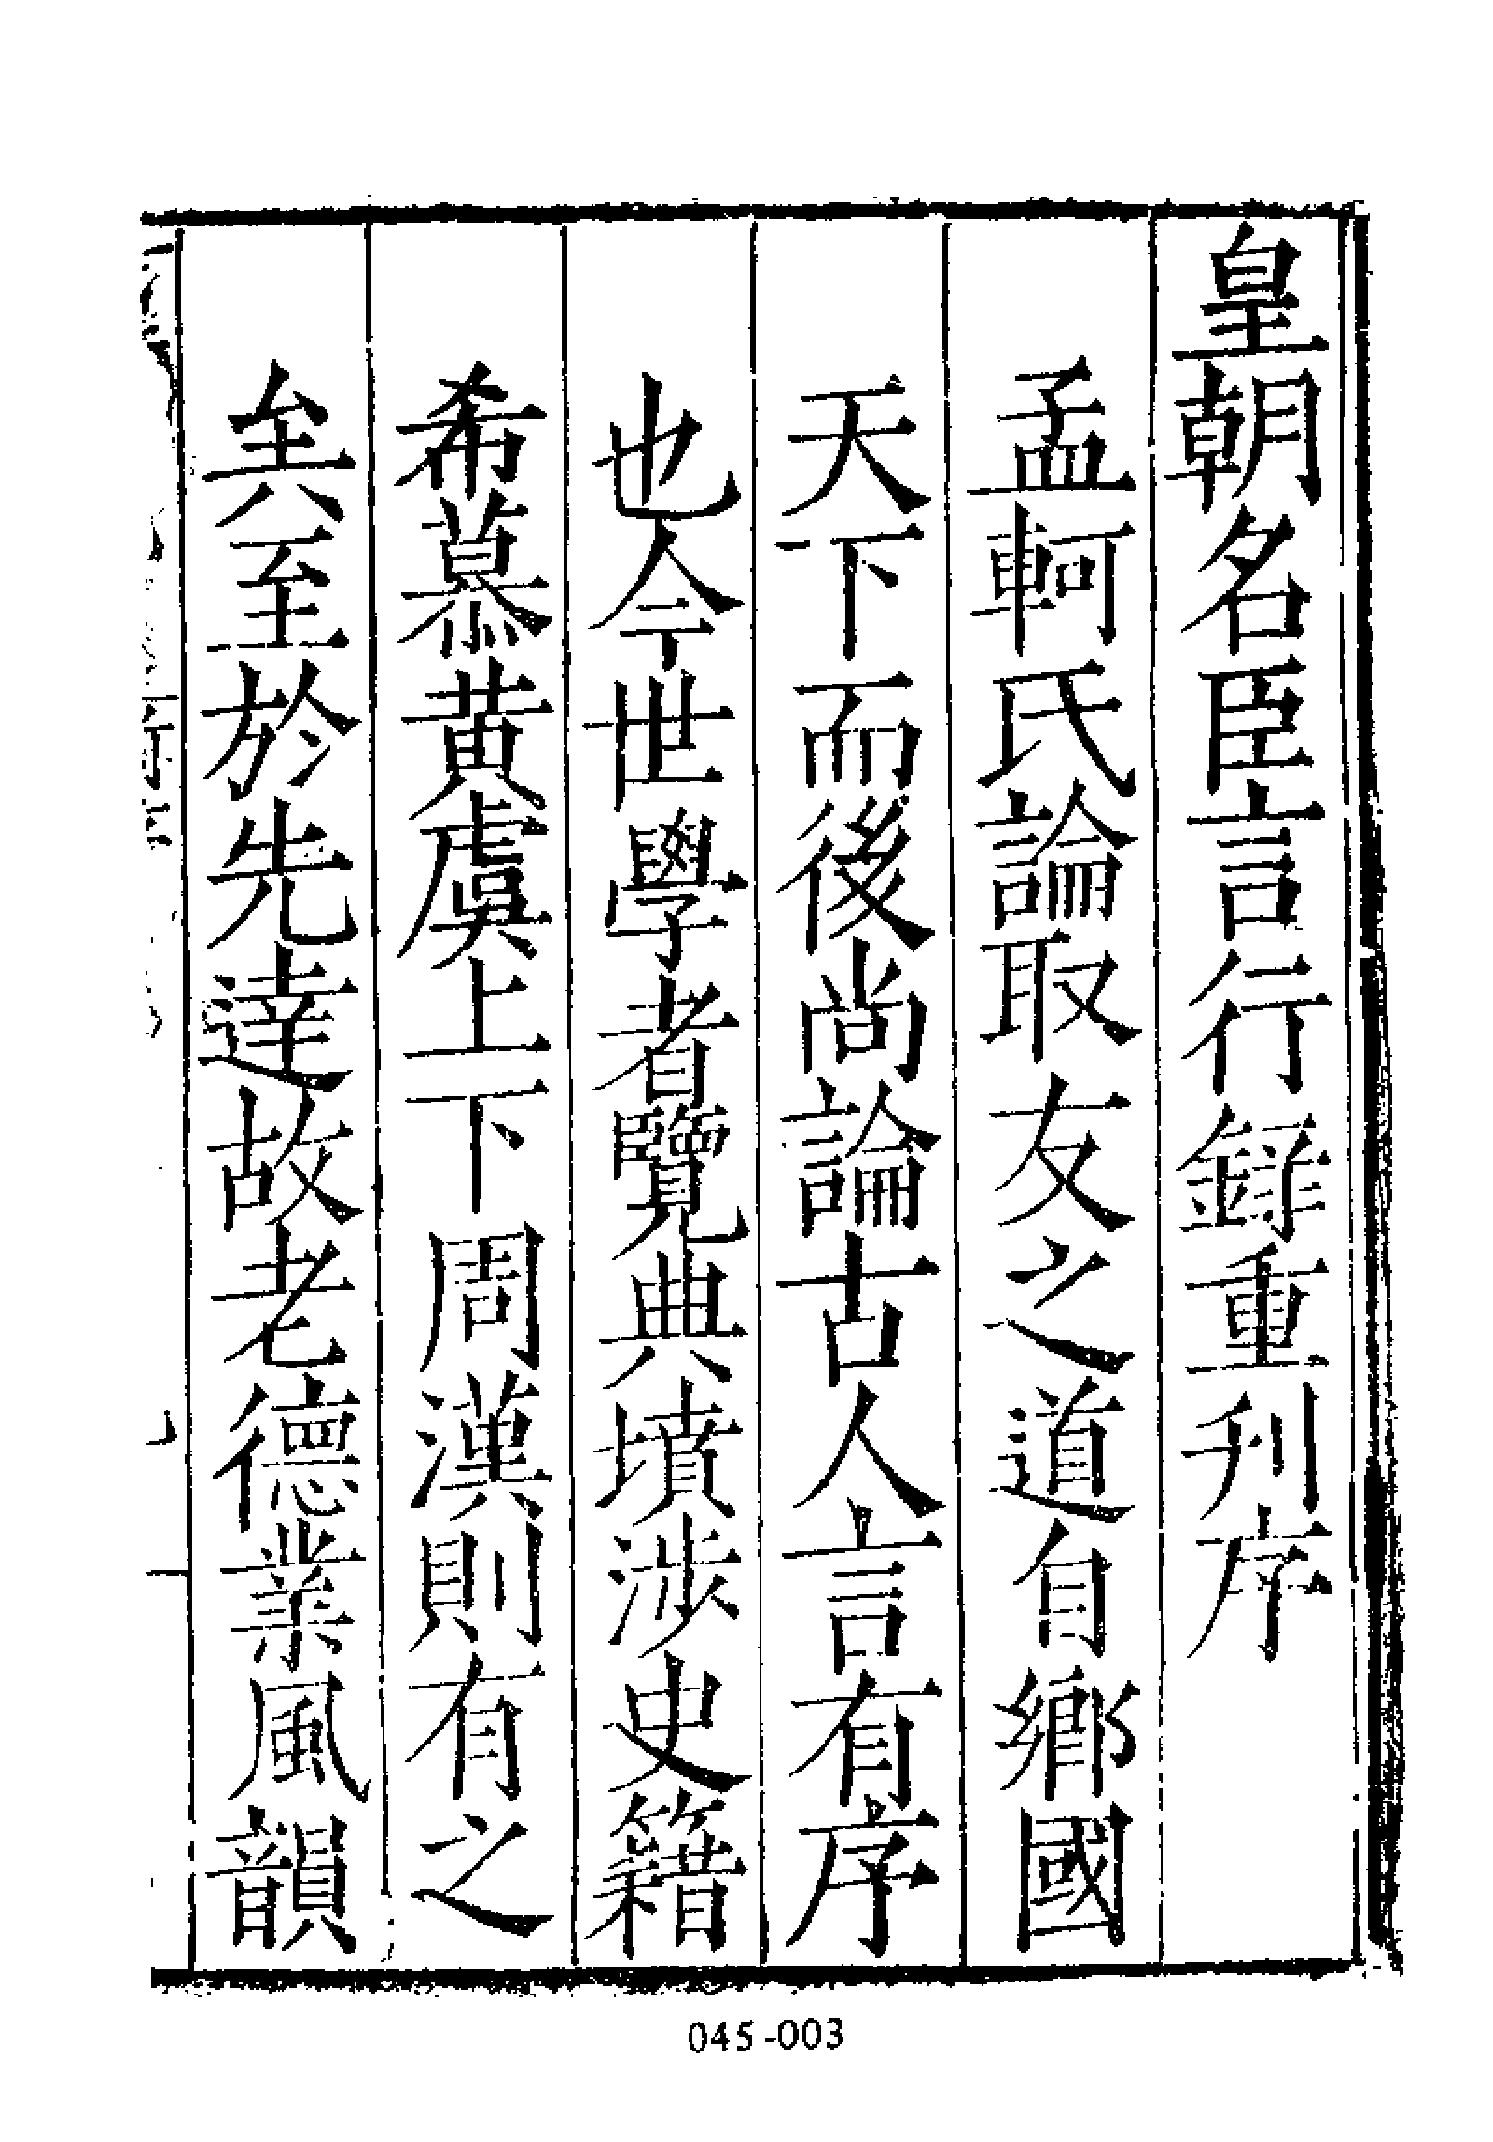 皇朝名臣言行錄重刋序
孟軻氏論取友之道自鄉國
天下而後尚論古人言有序
也今世學者覽典墳涉史籍
希慕黃虞上下周漢則有之
矣至於先達故老德業風韻
045-003